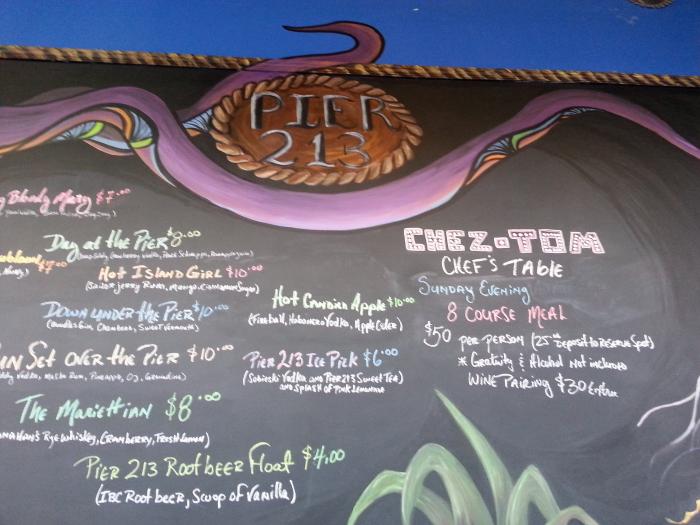 PIER
213
Bloody Mary $7.00
Day at the PIER $8.00
$7.00
Hot Island Girl $10.00
(Sailor Jerry Rum, Mango, Cinnamon Sugar)
Down Under the Pier $10.00
Sun Set over the Pier $10.00
The Mariettian $8.00
Rye whiskey, Cranberry, Fresh Lemon)
Pier 213 Root beer Float $4.00
(IBC Root beer, Scoop of Vanilla)
Hot Candied Apple $10.00
(Fireball, Habanero Vodka, Apple Cider)
Pier 213 Ice Pick $6.00
(Sobieski Vodka and Pier 213 Sweet Tea)
and splash of Pink Lemonade
CHEZ·TOM
Chef's Table
Sunday Evening
8 Course Meal
$50 per person (25 deposit to Reserve Spot)
* Gratuity & Alcohol Not included
Wine Pairing $30 Extra